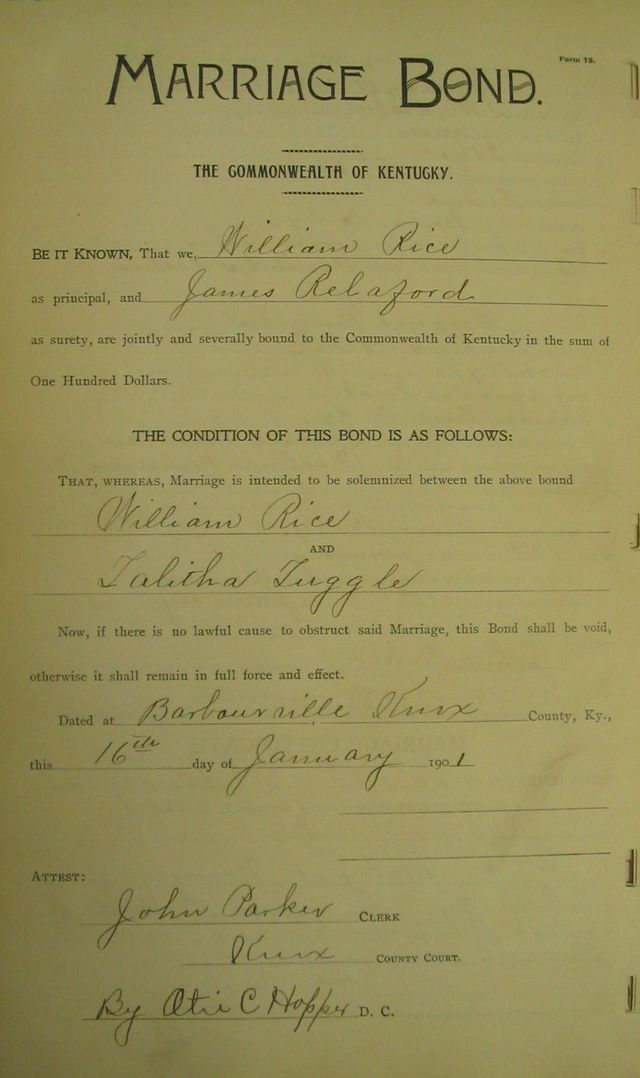 Form 79.
MARRIAGE BOND.
THE COMMONWEALTH OF KENTUCKY.
BE IT KNOWN, That we, William Rice
as principal, and James Relaford
as surety, are jointly and severally bound to the Commonwealth of Kentucky in the sum of
One Hundred Dollars.
THE CONDITION OF THIS BOND IS AS FOLLOWS:
THAT, WHEREAS, Marriage is intended to be solemnized between the above bound
William Rice
AND
Talitha Tuggle
Now, if there is no lawful cause to obstruct said Marriage, this Bond shall be void,
otherwise it shall remain in full force and effect.
Dated at Barbourville Knox County, Ky.,
this 16th day of January 1901
ATTEST:
John Parker CLERK
Knox COUNTY COURT.
By Otie C Hopper D. C.